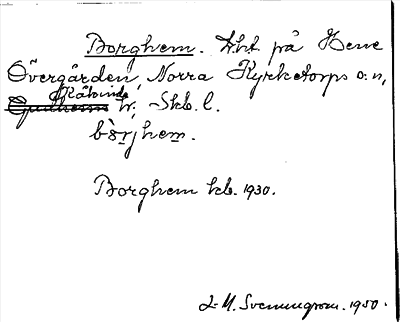 Borghem. Lht. på Hene
Övergården, Norra Kyrketorps sn,
Kåkinds
hr, Skb. l.
bòrjhem.
Borghem kb. 1930.
L-M. Svenungsson. 1950.